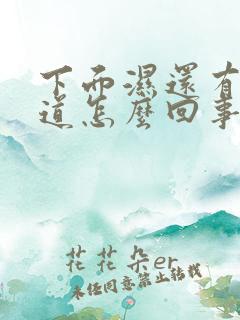 下面濕還有
道怎麼回事
花花朵er
未经同意禁止转载